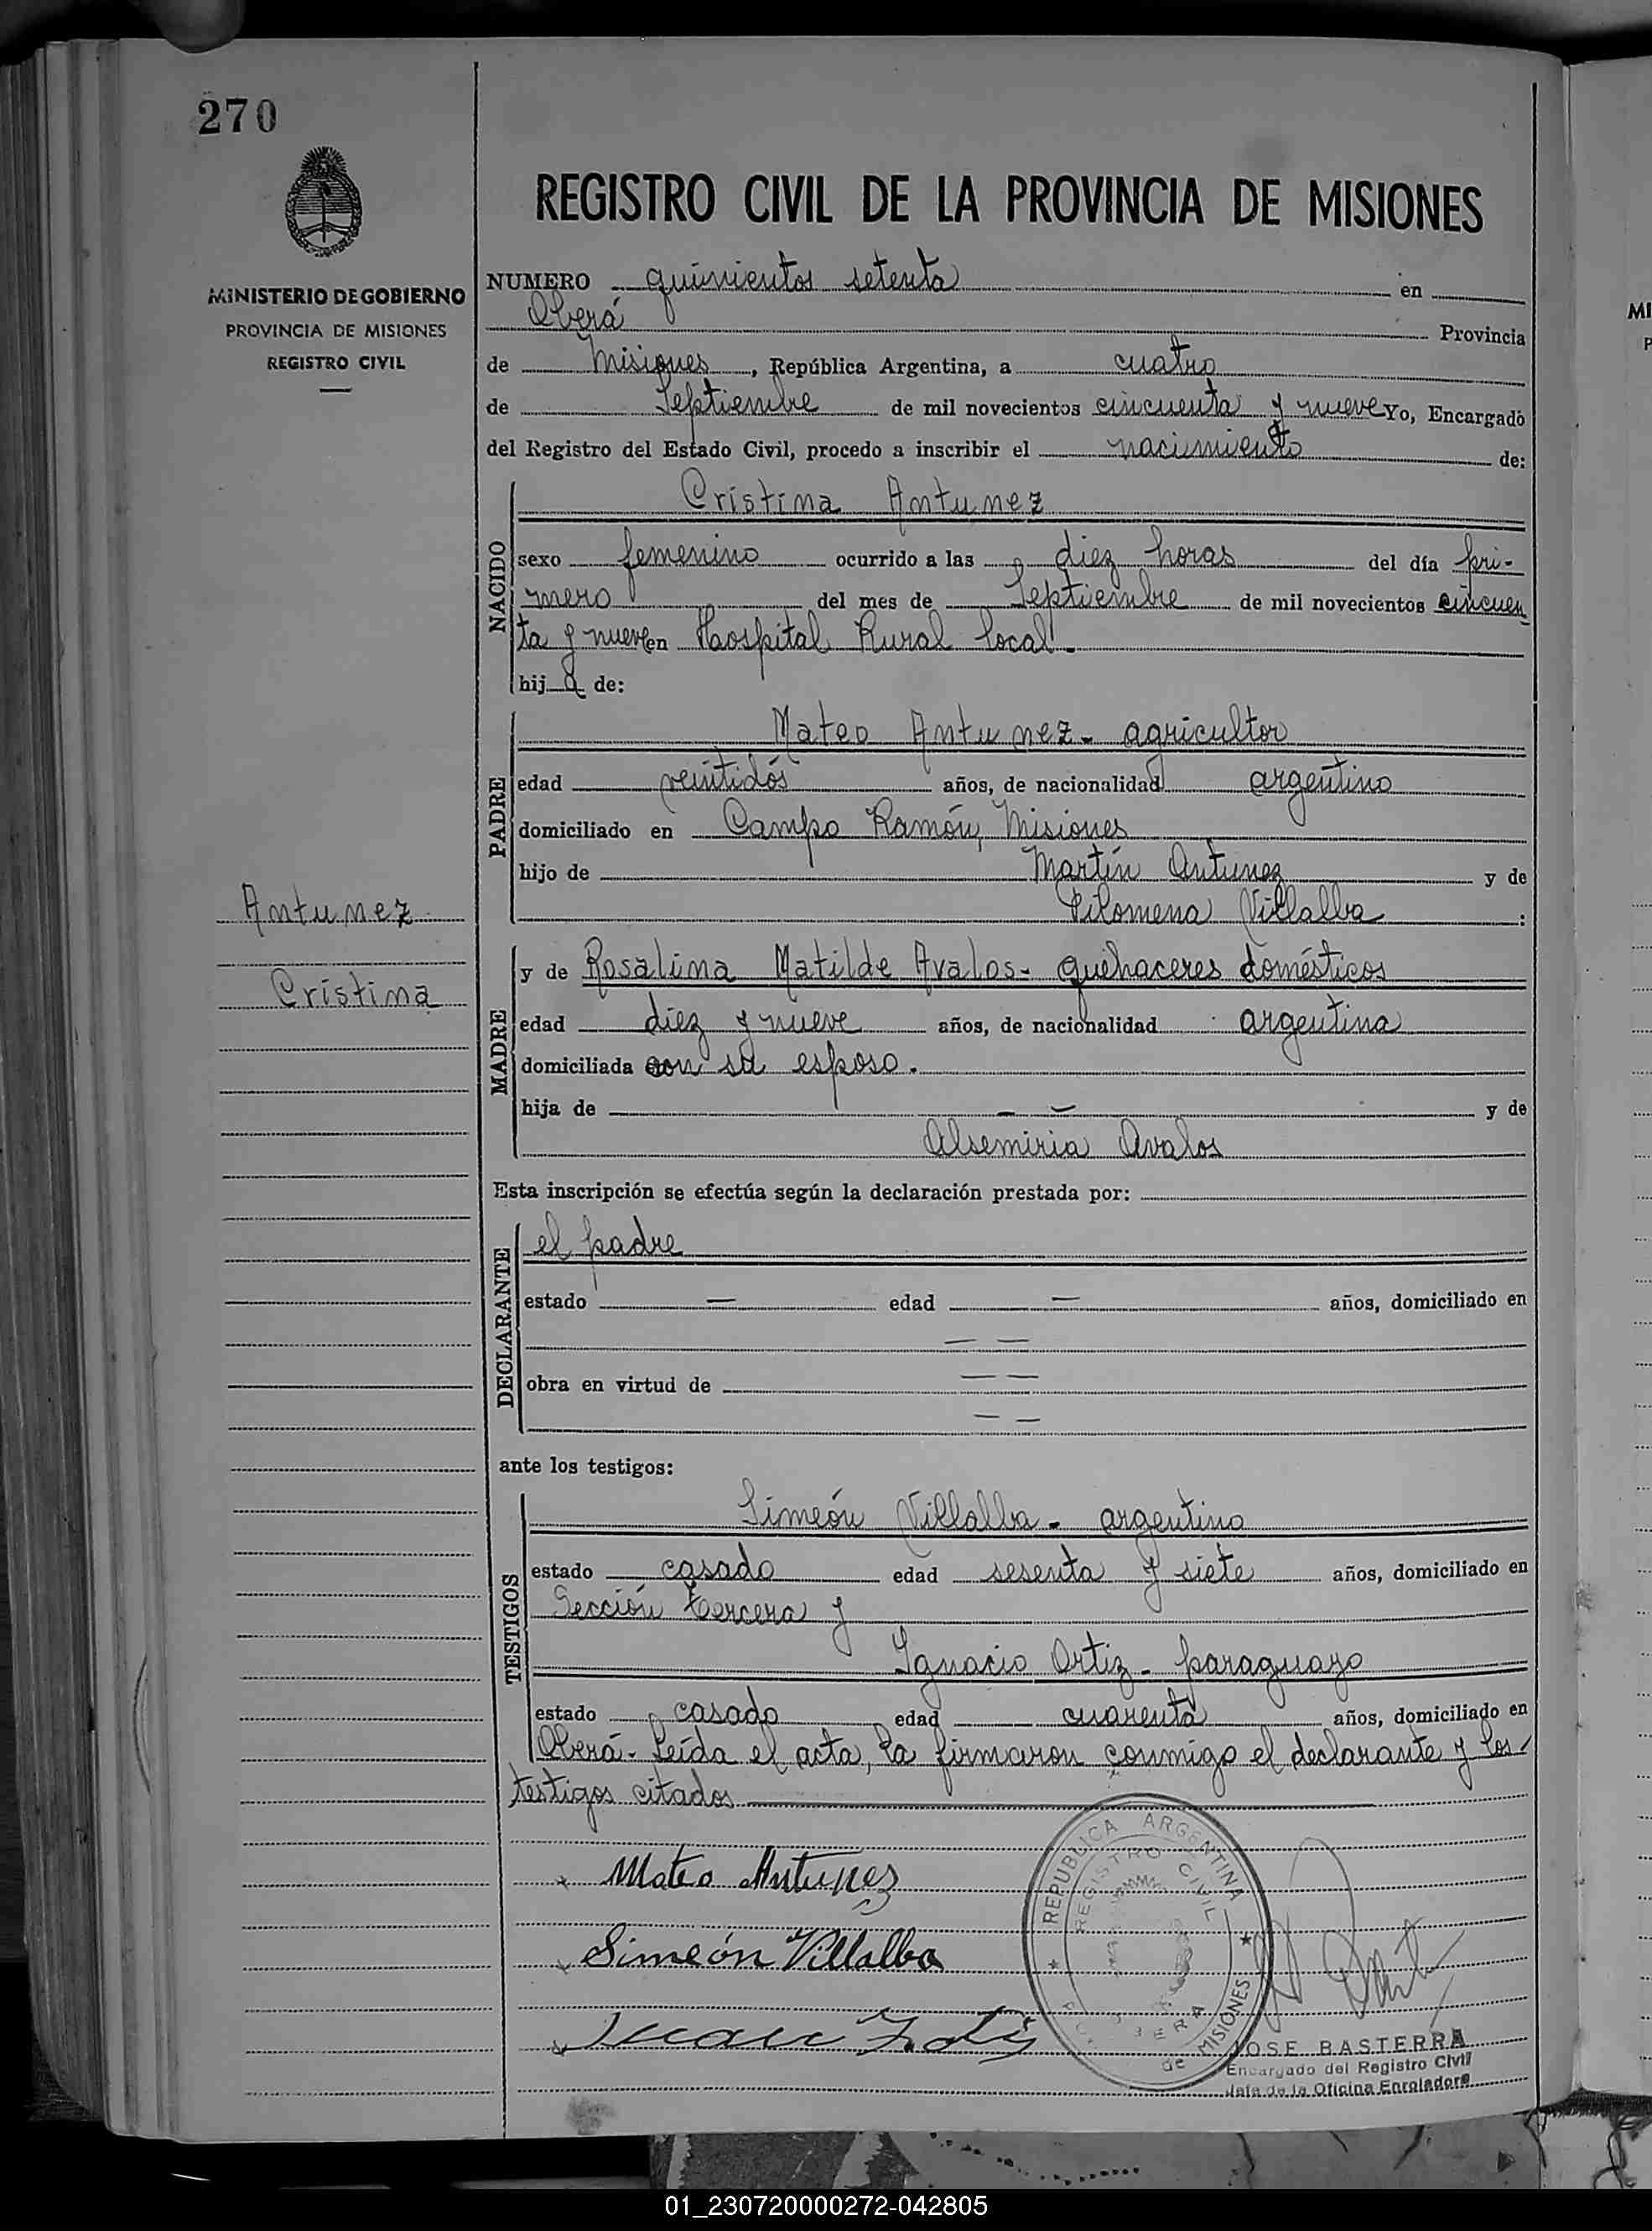 270
MINISTERIO DE GOBIERNO
PROVINCIA DE MISIONES
REGISTRO CIVIL
REGISTRO CIVIL DE LA PROVINCIA DE MISIONES
NUMERO quinientos setenta en
Oberá Provincia
de Misiones, República Argentina, a cuatro
de Septiembre de mil novecientos cincuenta y nueve Yo, Encargado
del Registro del Estado Civil, procedo a inscribir el nacimiento de:
NACIDO
Cristina Antunez
sexo femenino ocurrido a las diez horas del día pri-
mero del mes de Septiembre de mil novecientos cincuen
ta y nueve en Hospital Rural local.-
hija de:
PADRE
Mateo Antunez- agricultor
edad veintidós años, de nacionalidad argentino
domiciliado en Campo Ramón, Misiones
hijo de Martín Antunez y de
Filomena Villalba :
Antunez
Cristina
MADRE
y de Rosalina Matilde Avalos- quehaceres domésticos
edad diez y nueve años, de nacionalidad argentina
domiciliada con su esposo.
hija de — — y de
Alsemiria Avalos
Esta inscripción se efectúa según la declaración prestada por:
DECLARANTE
el padre
estado — edad — años, domiciliado en
— —
obra en virtud de — —
— —
ante los testigos:
TESTIGOS
Simeón Villalba- argentino
estado casado edad sesenta y siete años, domiciliado en
Sección tercera y
Ignacio Ortiz- paraguayo
estado casado edad cuarenta años, domiciliado en
Oberá- Leída el acta, la firmaron conmigo el declarante y los
testigos citados
Mateo Antunez
Simeón Villalba
REPUBLICA ARGENTINA
REGISTRO CIVIL
de MISIONES
JOSE BASTERRA
Encargado del Registro Civil
Jefe de la Oficina Enroladora
01_230720000272-042805